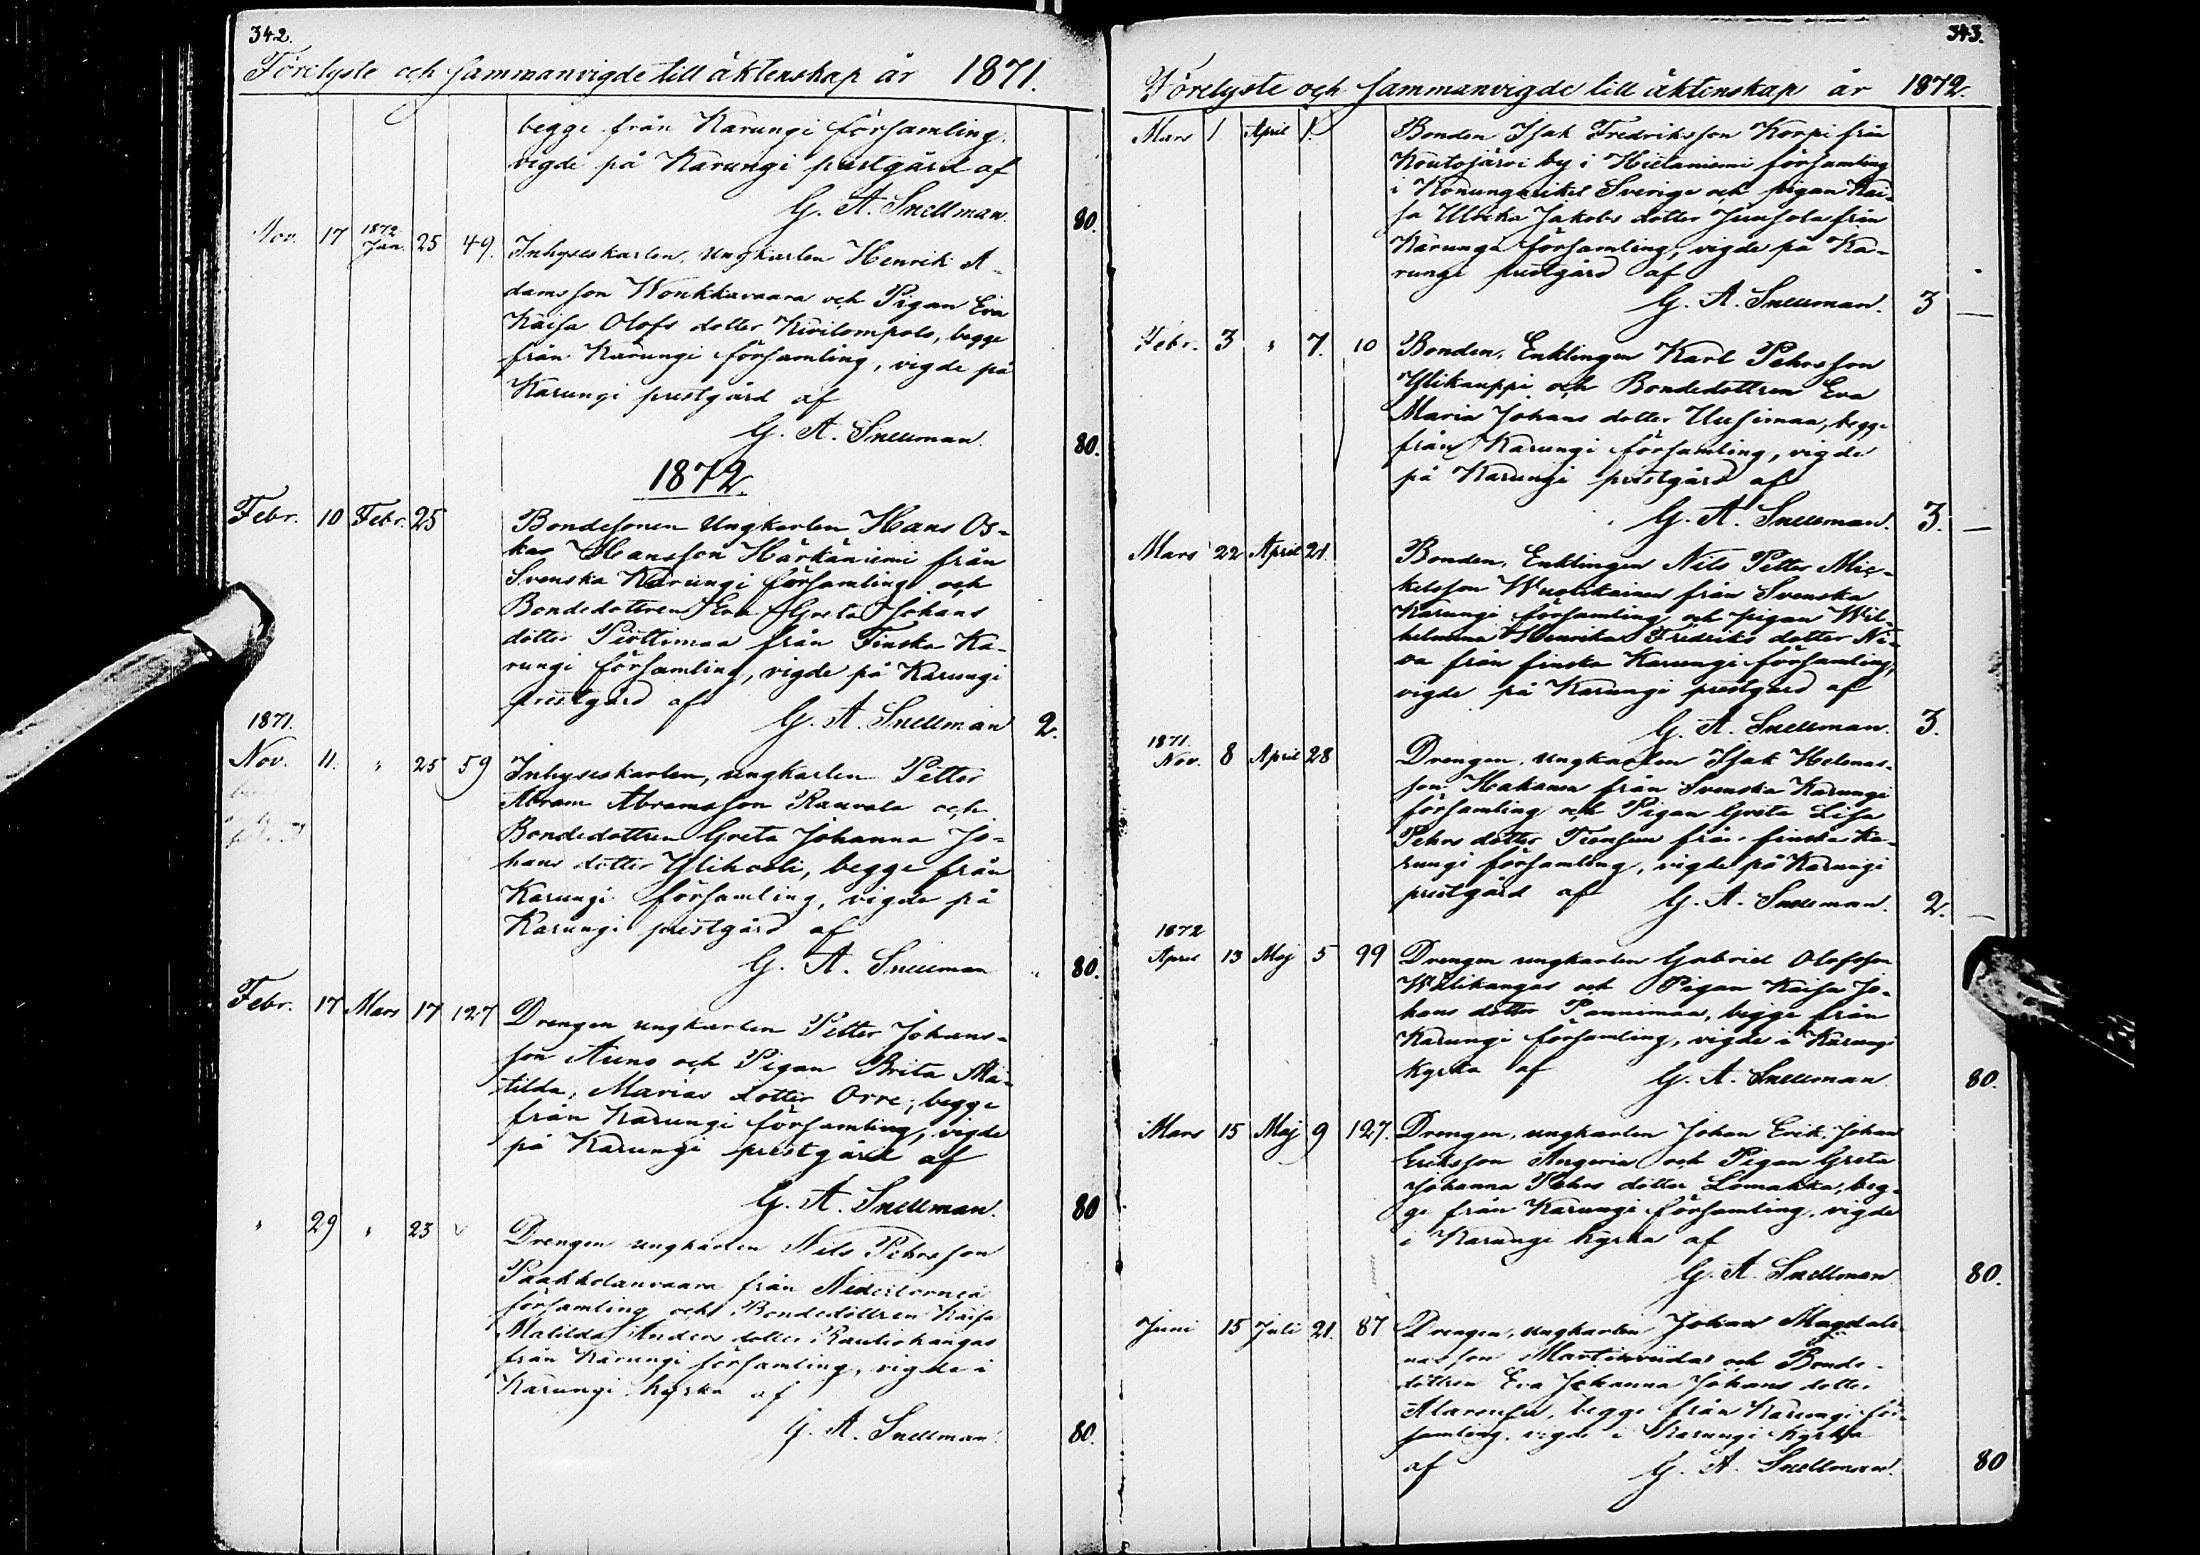 342.
Förelyste och sammanvigde till äktenskap år 1871.
begge från Karungi församling,
vigde på Karungi prestgård af
G. A. Snellman. 80.
Nov. 17 1872 Jan. 25 49. Inhyseskarlen, Ungkarlen Henrik A-
damsson Wonkkavaara och Pigan Eva
Kaisa Olofs dotter Kivilompolo, begge
från Karungi församling, vigde på
Karungi prestgård af
G. A. Snellman. 80.
1872.
Febr. 10 Febr. 25 Bondesonen Ungkarlen Hans Os-
kar Hansson Härkäniemi från
Svenska Karungi församling och
Bondedottren Eva Greta Johans
dotter Piöttimaa från Finska Ka-
rungi församling, vigde på Karungi
prestgård af G. A. Snellman 2.
1871.
Nov. 11. " 25 59 Inhyseskarlen, ungkarlen Petter
Abram Abramsson Rauvala och
Bondedottren Greta Johanna Jo-
hans dotter Ylikooli, begge från
Karungi församling, vigde på
Karungi prestgård af
G. A. Snellman " 80.
Febr. 17 Mars 17 127 Drengen ungkarlen Petter Johans-
son Auno och Pigan Brita Ma-
tilda, Marias dotter Orre, begge
från Karungi församling, vigde
på Karungi prestgård af
G. A. Snellman. 80
" 29 " 23 Drengen ungkarlen Nils Pehrsson
Paakkolanvaara från Nedertorneå
församling och Bondedottren Kaisa
Matilda Anders dotter Rautiokangas
från Karungi församling, vigde i
Karungi kyrka af
G. A. Snellman. 80.
343.
Förelyste och sammanvigde till äktenskap år 1872.
Mars 1 April 1. Bonden Isak Fredriksson Korpi från
Koutojärvi by i Hietaniemi församling
i Konungariket Sverige och pigan Kai-
sa Ulrika Jakobs dotter Juusola från
Karungi församling, vigde på Ka-
rungi prestgård af
G. A. Snellman. 3 —
Febr. 3 " 7. 10 Bonden, Enklingen Karl Pehrsson
Ylikauppi och Bondedottren Eva
Maria Johans dotter Uusimaa, begge
från Karungi församling, vigde
på Karungi prestgård af
G. A. Snellman. 3. —
Mars 22 April 21. Bonden, Enklingen Nils Petter Mic-
kelsson Wuolikainen från Svenska
Karungi församling och pigan Wil-
helmina Henrika Fredriks dotter Ni-
va från finska Karungi församling,
vigde på Karungi prestgård af
G. A. Snellman. 3.
1871.
Nov. 8 April 28 Drengen, ungkarlen Isak Helenas-
son Hakanen från Svenska Karungi
församling och Pigan Greta Lisa
Pehrs dotter från finska Ka-
rungi församling, vigde på Karungi
prestgård af G. A. Snellman. 2. —
1872
April 13 Maj 5 99 Drengen ungkarlen Gabriel Olofsson
Wälikangas och Pigan Kaisa Jo-
hans dotter Pannimaa, begge från
Karungi församling, vigde i Karungi
kyrka af G. A. Snellman 80.
Mars 15 Maj 9 127. Drengen, ungkarlen Johan Erik Johan
Eriksson och Pigan Greta
Johanna Pehrs dotter Lomakka, beg-
ge från Karungi församling, vigde
i Karungi kyrka af
G. A. Snellman 80.
Juni 15 Juli 21. 87 Drengen, ungkarlen Johan Magdale-
nasson och Bonde-
dottren Eva Johanna Johans dotter
begge från Karungi för-
samling, vigde i Karungi kyrka
af G. A. Snellman. 80